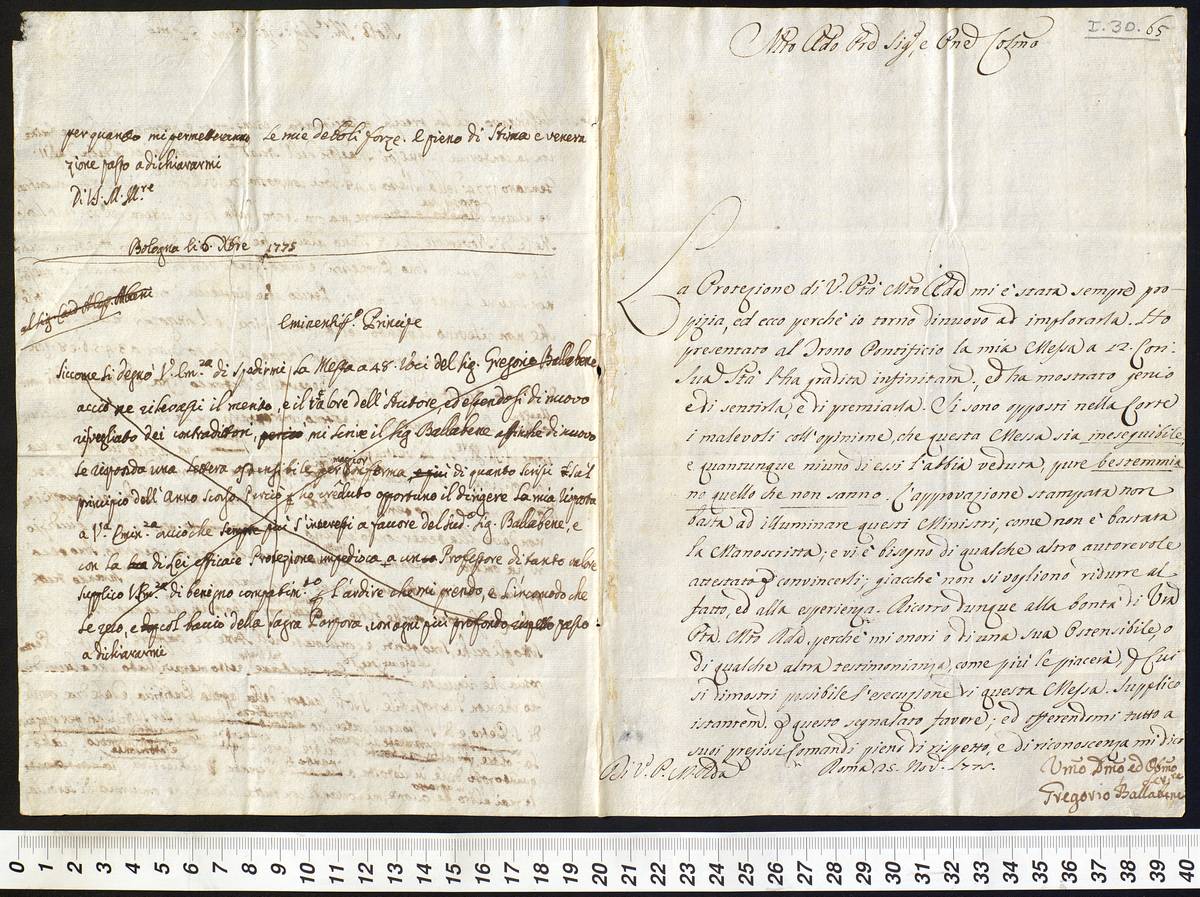 per quanto mi permetteranno le mie deboli forze. E pieno di stima e venera
zione passo a dichiararmi
Di V. P. M. Rre
Bologna li 6. Xbre 1775
al Sig. Card. Aless. Albani
Eminentiss.o Principe
Siccome si degnò V.a Em.za di spedirmi la Messa a 48. Voci del Sig. Gregorio Ballabene
acciò ne rilevassi il merito, e il valore dell'Autore, ed essendosi di nuovo
risvegliato dei contraditori, perciò mi scrive il Sig. Ballabene affinche di nuovo
le risponda una lettera ostensibile per maggior conferma di quanto scrissi
principio dell'Anno scorso. Perciò ho creduto opportuno il dirigere la mia risposta
a V.a Emin.za acciò che sempre più s'interessi a favore del sud.o Sig. Ballabene, e
con la di Lei efficace Protezione impedisca a un Professore di tanto valore
Supplico V. Em.za di benigno compatim.to l'ardire che mi prendo, e l'incomodo che
le reco, e col bacio della Sagra Porpora, con ogni più profondo rispetto passo
a dichiararmi
I. 30. 65
Mto Rdo Prd Sigr, e Pne Colmo
La Protezione di V. Ptà Mto Rda mi è stata sempre pro-
pizia, ed ecco perchè io torno dinuovo ad implorarla. Ho
presentato al Trono Pontificio la mia Messa a 12. Cori.
Sua Stà l'ha gradita infinitam., ed ha mostrato genio
e di sentirla, e di premiarla. Si sono opposti nella Corte
i malevoli coll'opinione, che questa Messa sia ineseguibile,
e quantunque niuno di essi l'abbia veduta, pure bestemmia
no quello che non sanno. L'approvazione stampata non
basta ad illuminare questi Ministri, come non è bastata
la Manoscritta; e vi è bisogno di qualche altro autorevole
attestato p convincerli; giacchè non si vogliono ridurre al
fatto, ed alla esperienza. Ricorro dunque alla bontà di Vra
Ptà Mto Rda, perchè mi onori o di una sua Ostensibile, o
di qualche altra testimonianza, come più le piacerà, p cui
si dimostri possibile l'esecuzione di questa Messa. Supplico
istantem. p questo segnalato favore; ed offerendomi tutto a
suoi preziosi Comandi pieno di rispetto, e di riconoscenza mi dico
Di V. P. M. Rda
Roma 25. Nov. 1775.
Umo Dmo ed Obmo
Servre
Gregorio Ballabene
0 1 2 3 4 5 6 7 8 9 10 11 12 13 14 15 16 17 18 19 20 21 22 23 24 25 26 27 28 29 30 31 32 33 34 35 36 37 38 39 40